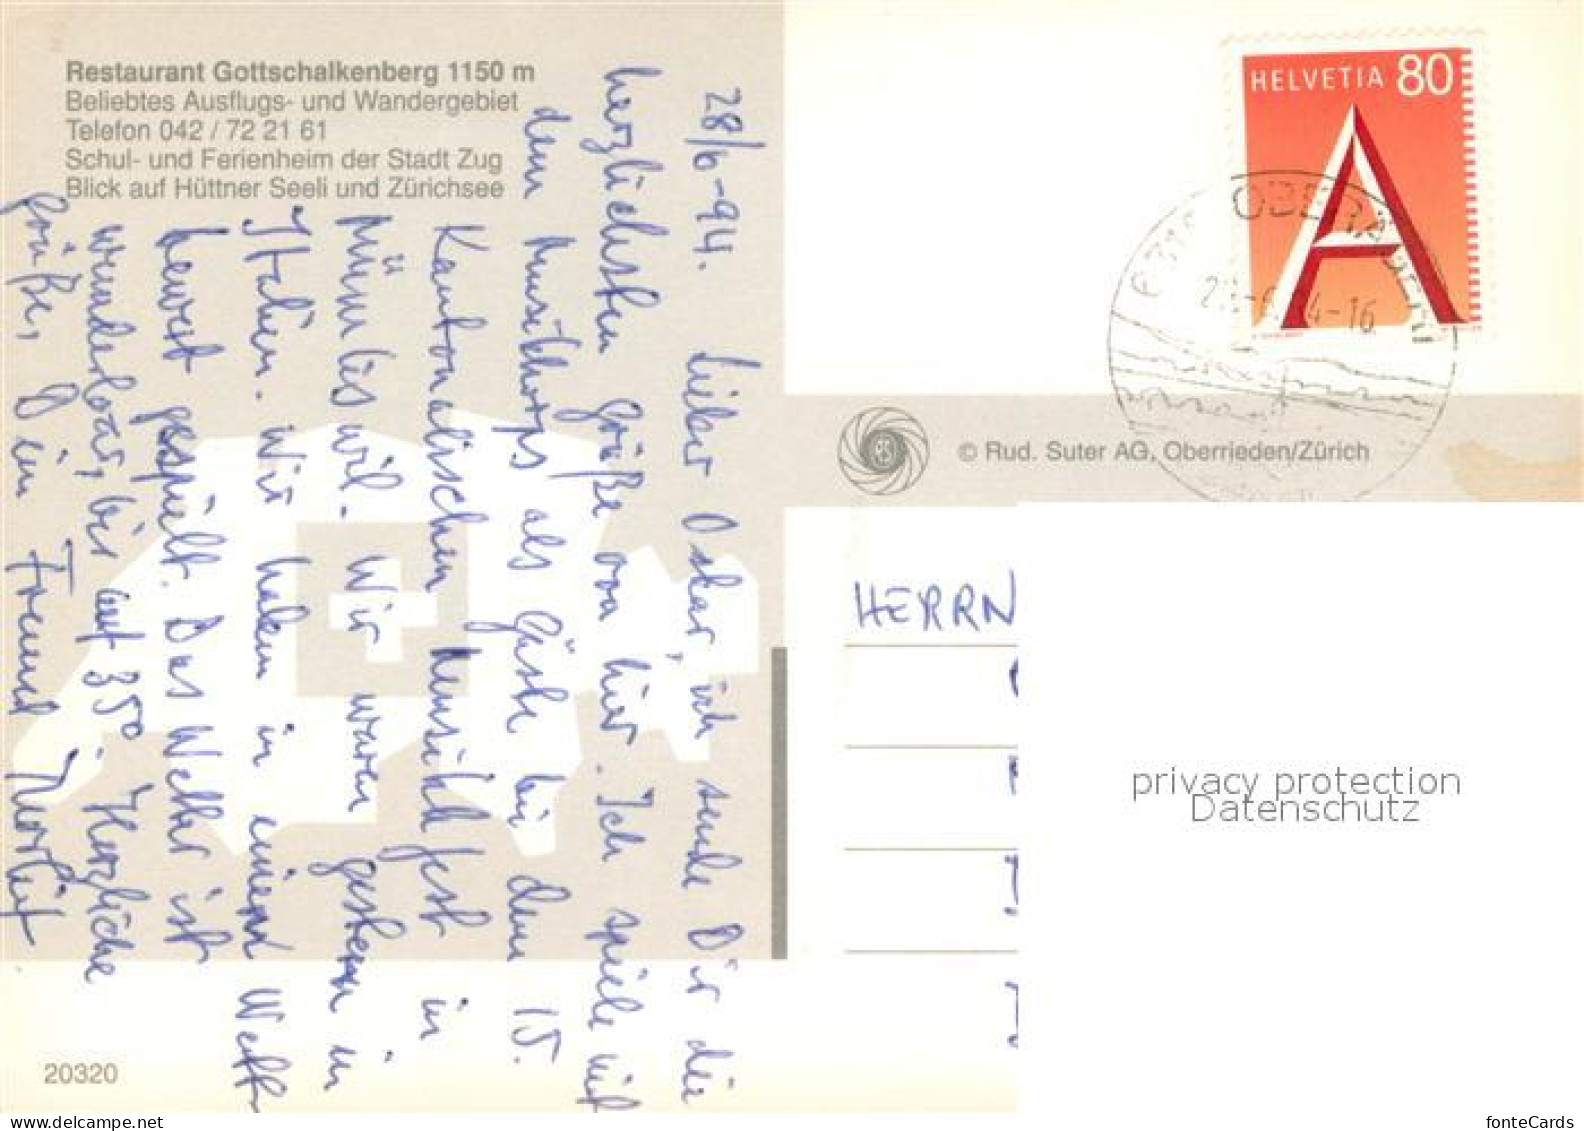 Restaurant Gottschalkenberg 1150 m
Beliebtes Ausflugs- und Wandergebiet
Telefon 042 / 72 21 61
Schul- und Ferienheim der Stadt Zug
Blick auf Hüttner Seeli und Zürichsee
28/6-94. Lieber Oskar, ich sende Dir die
herzlichsten Grüße von hier. Ich spiele mit
dem Musikkorps als Gäste bei dem 15.
Kantonalischen Musikfest in
Wir waren gestern in
Italien. Wir haben in einem
gespielt. Das Wetter ist
wunderbar, bis auf 35°. Herzliche
Grüße, Dein Freund
20320
HELVETIA 80
A
© Rud. Suter AG, Oberrieden/Zürich
HERRN
privacy protection
Datenschutz
delcampe.net
fonteCards